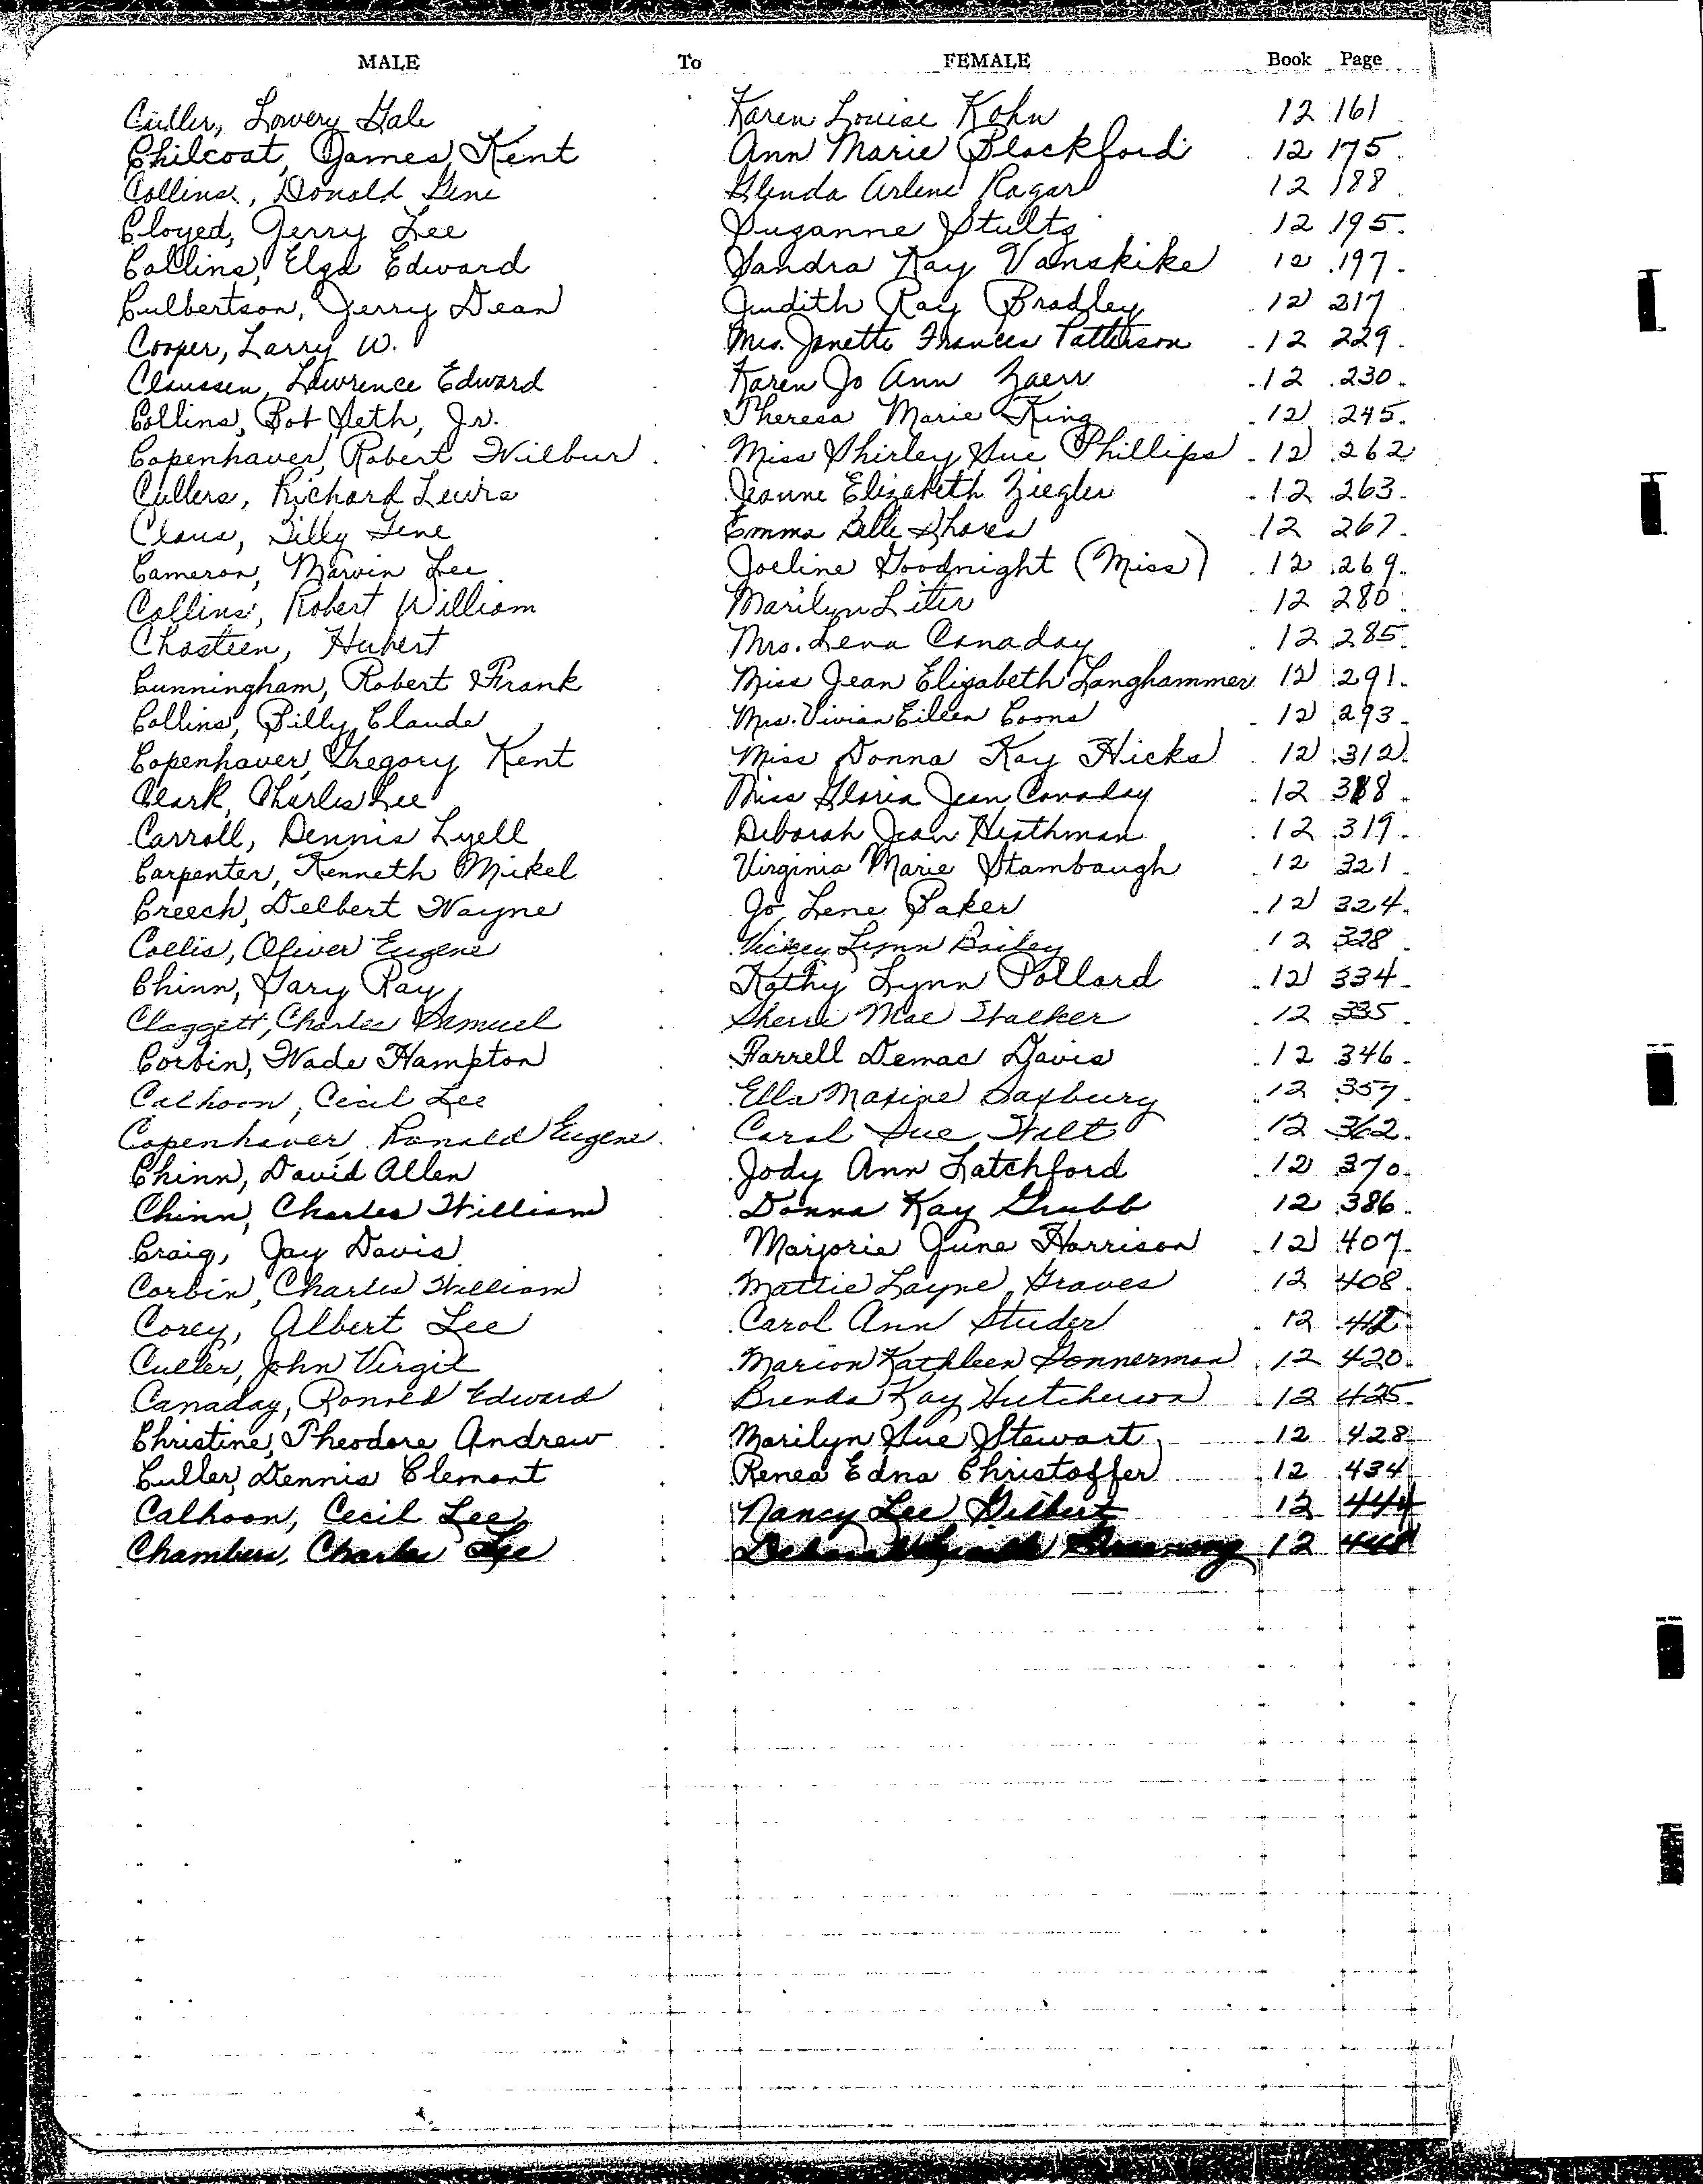 MALE To FEMALE Book Page
Culler, Lowery Gale Karen Louise Kohn 12 161
Chilcoat, James Kent Ann Marie Blackford 12 175
Collins, Donald Gene Glenda Arlene Ragar 12 188
Cloyed, Jerry Lee Suzanne Stults 12 195
Collins, Elza Edward Sandra Kay Vanskike 12 197
Culbertson, Jerry Dean Judith Ray Bradley 12 217
Cooper, Larry W. Mrs. Janette Frances Patterson 12 229
Claussen, Lawrence Edward Karen Jo Ann Zaerr 12 230
Collins, Bob Seth, Jr. Theresa Marie King 12 245
Copenhaver, Robert Wilbur Miss Shirley Sue Phillips 12 262
Cullers, Richard Lewis Jeanne Elizabeth Ziegler 12 263
Claus, Billy Gene Emma Belle Shores 12 267
Cameron, Marvin Lee Joeline Goodnight (Miss) 12 269
Collins, Robert William Marilyn Liter 12 280
Chasteen, Hubert Mrs. Lena Canaday 12 285
Cunningham, Robert Frank Miss Jean Elizabeth Langhammer 12 291
Collins, Billy Claude Mrs. Vivian Eileen Coons 12 293
Copenhaver, Gregory Kent Miss Donna Kay Hicks 12 312
Clark, Charles Lee Miss Gloria Jean Canaday 12 318
Carroll, Dennis Lyell Deborah Jean Heathman 12 319
Carpenter, Kenneth Mikel Virginia Marie Stambaugh 12 321
Creech, Delbert Wayne Jo Lene Baker 12 324
Collis, Oliver Eugene Vickey Lynn Bailey 12 328
Chinn, Gary Ray Kathy Lynn Pollard 12 334
Claggett, Charles Samuel Sherri Mae Walker 12 335
Corbin, Wade Hampton Farrell Demac Davis 12 346
Calhoon, Cecil Lee Ella Maxine Saxbury 12 357
Copenhaver, Ronald Eugene Carol Sue Wilt 12 362
Chinn, David Allen Jody Ann Latchford 12 370
Chinn, Charles William Donna Kay Grubb 12 386
Craig, Jay Davis Marjorie June Harrison 12 407
Corbin, Charles William Mattie Layne Graves 12 408
Corey, Albert Lee Carol Ann Studer 12
Culler, John Virgil Marion Kathleen Gonnerman 12 420
Canaday, Ronald Edward Brenda Kay Hutcherson 12 425
Christine, Theodore Andrew Marilyn Sue Stewart 12 428
Culler, Dennis Clemont Renea Edna Christoffer 12 434
Calhoon, Cecil Lee Nancy Lee Gilbert 12 444
Chambers, Charles Lee 12